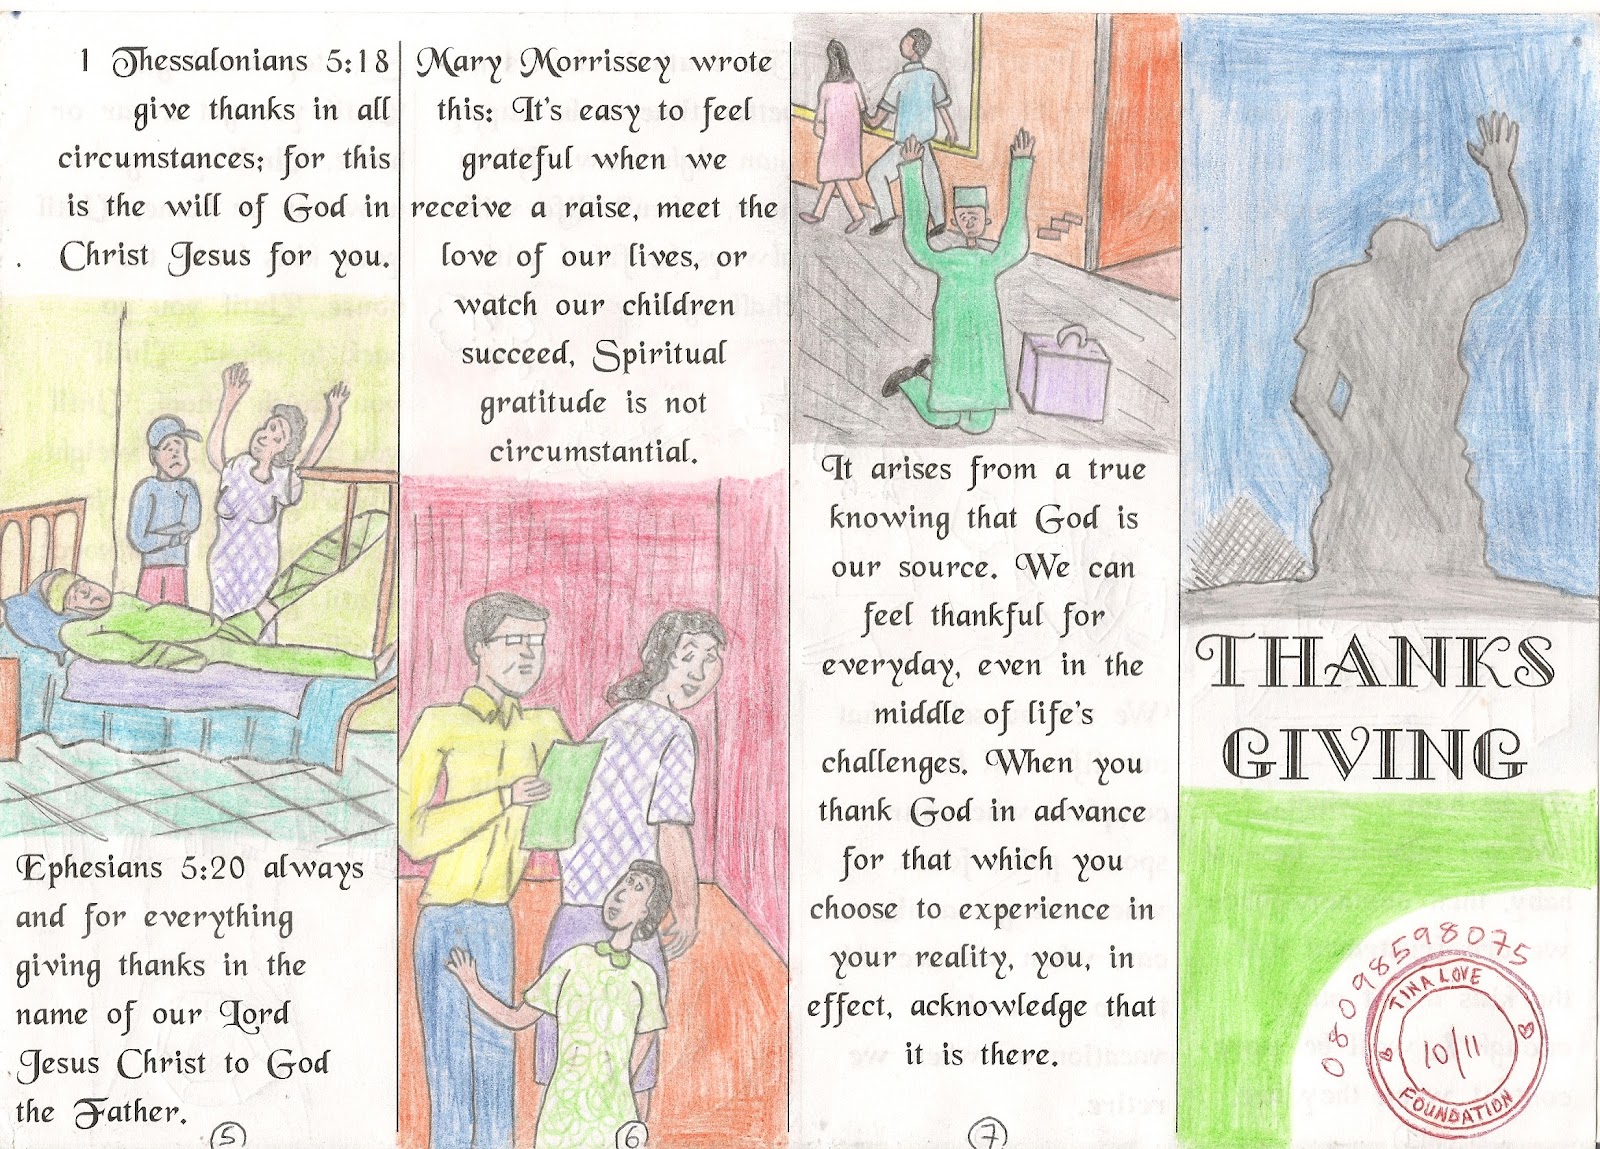 1 Thessalonians 5:18
give thanks in all
circumstances; for this
is the will of God in
. Christ Jesus for you.
Ephesians 5:20 always
and for everything
giving thanks in the
name of our Lord
Jesus Christ to God
the Father.
5
Mary Morrissey wrote
this: It's easy to feel
grateful when we
receive a raise, meet the
love of our lives, or
watch our children
succeed, Spiritual
gratitude is not
circumstantial.
6
It arises from a true
knowing that God is
our source. We can
feel thankful for
everyday, even in the
middle of life's
challenges. When you
thank God in advance
for that which you
choose to experience in
your reality, you, in
effect, acknowledge that
it is there.
7
THANKS
GIVING
08098598075
TINA LOVE
10/11
FOUNDATION